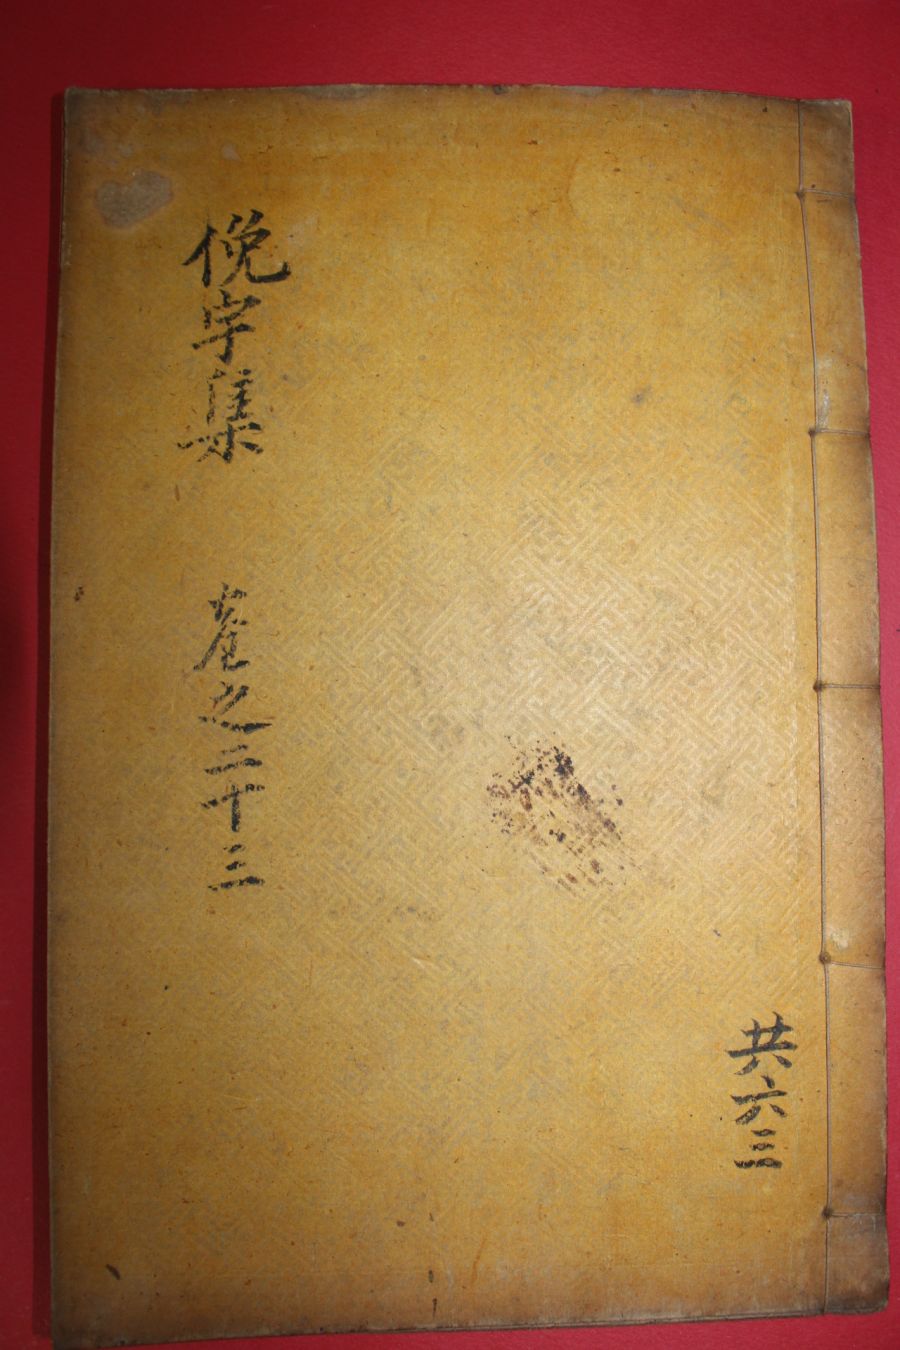 俛宇集 卷之二十三
共六三